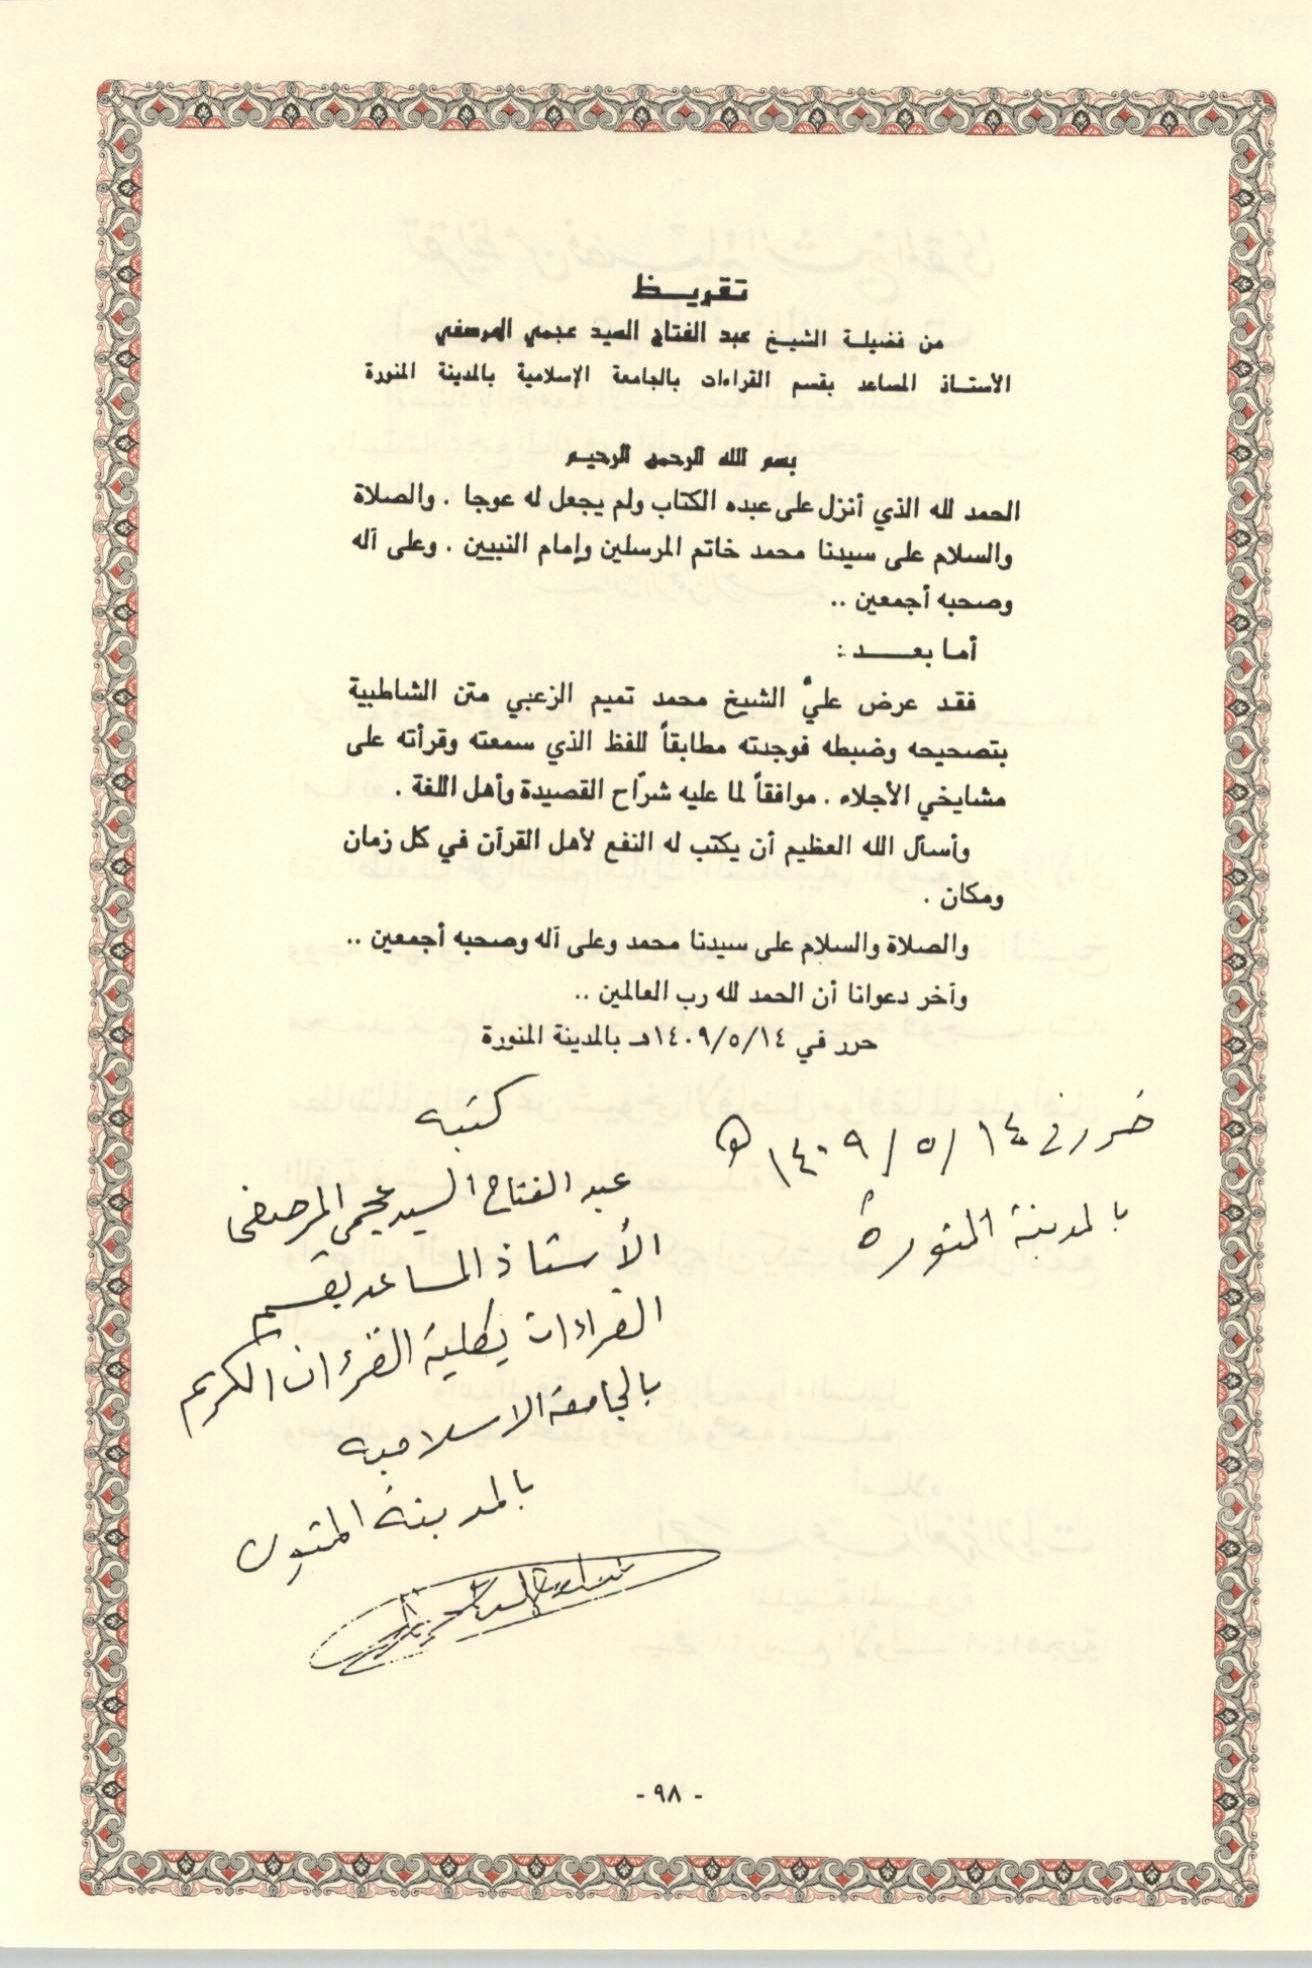 تقريظ
من فضيلة الشيخ عبد الفتاح السيد عجمي المرصفي
الأستاذ المساعد بقسم القراءات بالجامعة الإسلامية بالمدينة المنورة
بسم الله الرحمن الرحيم
الحمد لله الذي أنزل على عبده الكتاب ولم يجعل له عوجا . والصلاة
والسلام على سيدنا محمد خاتم المرسلين وإمام النبيين . وعلى آله
وصحبه أجمعين ..
أما بعد :
فقد عرض عليَّ الشيخ محمد تميم الزعبي متن الشاطبية
بتصحيحه وضبطه فوجدته مطابقاً للفظ الذي سمعته وقرأته على
مشايخي الأجلاء . موافقاً لما عليه شرّاح القصيدة وأهل اللغة .
وأسأل الله العظيم أن يكتب له النفع لأهل القرآن في كل زمان
ومكان .
والصلاة والسلام على سيدنا محمد وعلى آله وصحبه أجمعين ..
وآخر دعوانا أن الحمد لله رب العالمين ..
حرر في ١٤٠٩/٥/١٤هـ بالمدينة المنورة
حرر في ١٤٠٩/٥/١٤ هـ
بالمدينة المنورة
كتبه
عبد الفتاح السيد عجمي المرصفي
الأستاذ المساعد بقسم
القراءات بكلية القرءان الكريم
بالجامعة الاسلامية
بالمدينة المنورة
- ٩٨ -